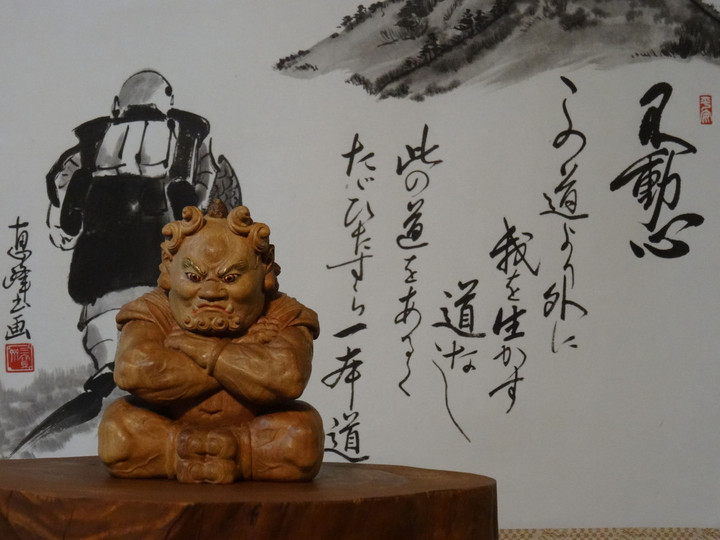 不動心
この道より外に
我を生かす
道なし
此の道をあるく
たゞひたすら一本道
恵峰書画